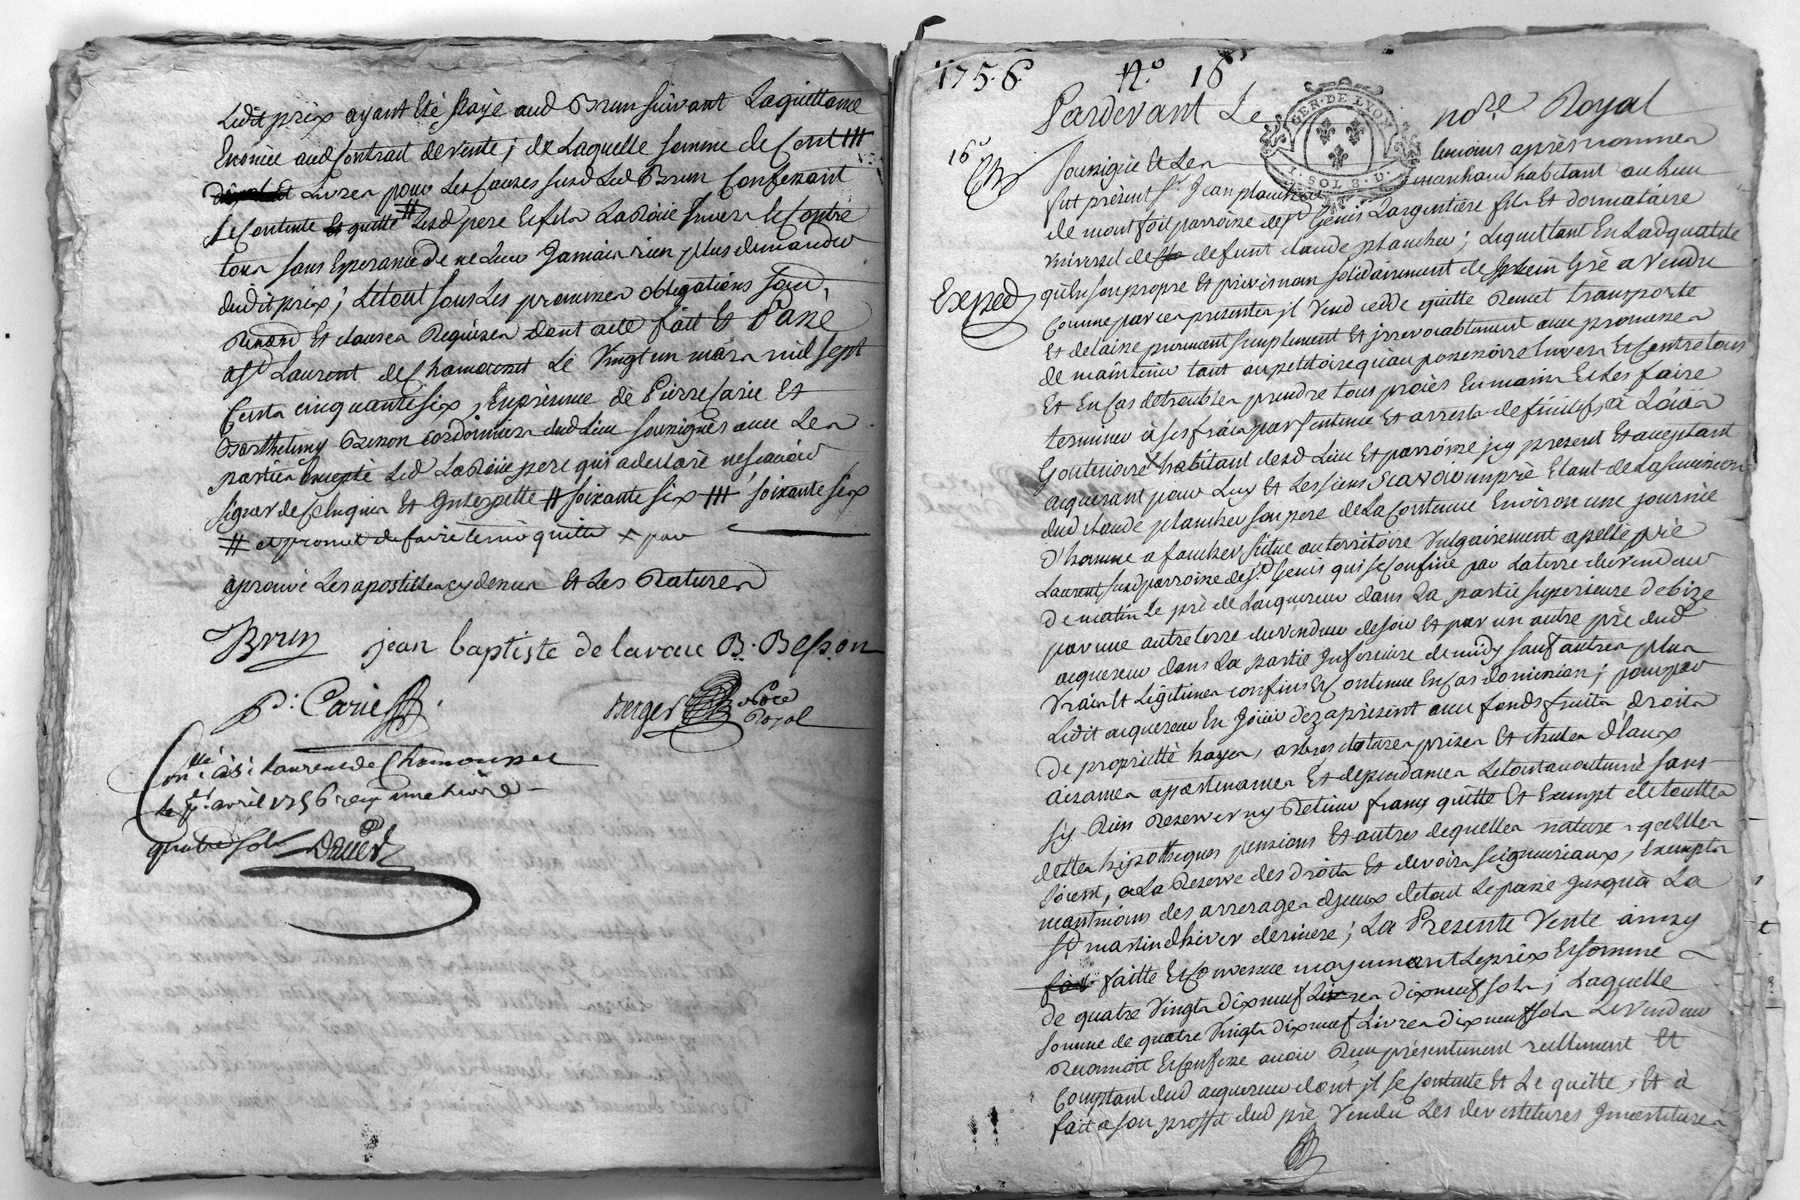 Ledit prix ayant Eté payé aud Brun suivant Laquittance
Enoncée aud Contrait de vente; de Laquelle somme de Cent ###
Livres pour Les Causes susd Led Brun Confessant
se Contente Et quitte # Lesd pere Et fils Envers Et Contre
tous sans Esperance de ne Leur Jamais rien plus demander
dudit prix; Letout sous Les promesses obligations soum.
Renon Et clauses Requises dont acte fait Et Passé
a St Laurent de Chamousset Le Vingt un mars mil sept
Cents cinquante six, En présence de Pierre Carie Et
Barthelemy cordonniers dud Lieu soussignés avec Les
parties Excepté Led pere qui a déclaré ne scavoir
signer de ce Enquis Et Interpellé # soixante six ### soixante six
# et promet de faire tenir quitte x par
aprouvé Les apostilles cy dessus Et Les Ratures
Brun jean baptiste de lavaue B. Besson
P. Carie Berger nore
Royal
Conlé à St Laurens de Chamousset
le avril 1756 reçu une livre
quatre sols
1756 No 16
Pardevant Le nore Royal
GEN. DE LYON
1. SOL 8. D.
16e
soussigné Et Les temoins après nommés
fut présent Sr Jean planchet marchand habitant au lieu
de montfort parroisse de St Genis Largentière fils Et donnataire
universel de defunt claude planchet; Lequel tant En Lad qualité
Exped
qu'En son propre Et privé nom solidairement de son plein Gré a Vendu
Comme par ces presentes jl Vend cedde quitte Remet transporte
Et delaisse purement simplement Et jrrevocablement avec promesse
de maintenir tant au petitoire qu'au possessoire Envers Et Contre tous
Et En Cas de troubles prendre tous procès En mains Et Les faire
terminer à ses frais par sentence Et arrests definitifs, à Loüis
Goutenoire habitant desd Lieu Et parroisse jcy present Et acceptant
acquerant pour Luy Et Les siens Scavoir un pré Etant de La succession
dud claude planchet son pere de La Contenue Environ une journée
D'homme a faucher situé au territoire Vulgairement apellé pré
Laurent susd parroisse de St Genis qui se Confine par La terre du vendeur
De matin Le pré de Lacquereur dans La partie superieure de bize
par une autre terre du vendeur de soir Et par un autre pré dud
acquereur dans La partie Inferieure de midy sauf autres plus
Vrais Et Legitimes confins Et Contenue En Cas d'omission; pour par
Ledit acquereur En Joüir dez apresent avec fonds fruits, droits
De proprietté hayes, arbres clotures prises Et chutes d'Eaux
aisances apartenances Et dependances Letout sans
sy Rien Reserver ny Retenir franc quitte Et Exempt de touttes
dettes hipotheques pensions Et autres dequelles nature quelles
soient, a La Reserve des Droits Et devoirs seigneuriaux, Exempts
neantmoins des arrerages d'jceux de tout Le passé Jusqu'à La
St martin d'hiver derniere; La Presente Vente ainsy
faitte Et Convenue moyennant Le prix Et somme
de quatre Vingts dix neuf Livres dix neuf sols, Laquelle
somme de quatre Vingts dix neuf Livres dix neuf sols Le Vendeur
Reconnoit Et Confesse avoir Reçu présentement reellement Et
Comptant dud acquereur dont jl se Contente Et Le quitte, Et à
fait a son proffit dud pré Vendu Les devestitures Investitures